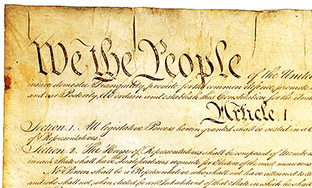 We the People of the United
insure domestic Tranquility, provide for the common defence, promote
and our Posterity, do ordain and establish this Constitution for the
Article. I.
Section. 1. All legislative Powers herein granted shall be vested in a
of Representatives.
Section. 2. The House of Representatives shall be composed of Members
in each State shall have Qualifications requisite for Electors of the most numerous
No Person shall be a Representative who shall not have attained to
and who shall not, when elected, be an Inhabitant of that State in which he